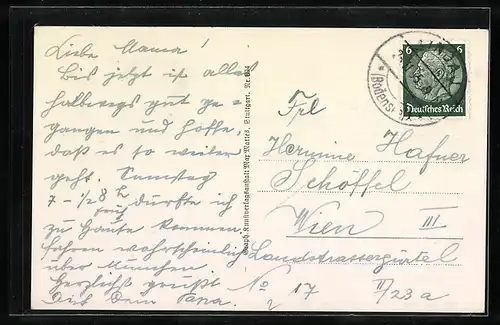 Liebe Mama!
Bis jetzt ist alles
halbwegs gut ge-
gangen und hoffe,
daß es so weiter
geht. Samstag
7 - ½8 h
früh dürfte ich
zu Hause kommen.
fahren wahrscheinlich
über München
Herzlichst grüßt
Dich Dein Papa.
Graph. Kunstverlagsanstalt Max Mattes, Stuttgart.
6 6
Deutsches Reich
(Bodensee)
Frl
Hermine Hafner
Schöffel
Wien III
Landstrassergürtel
No 17 II/23a